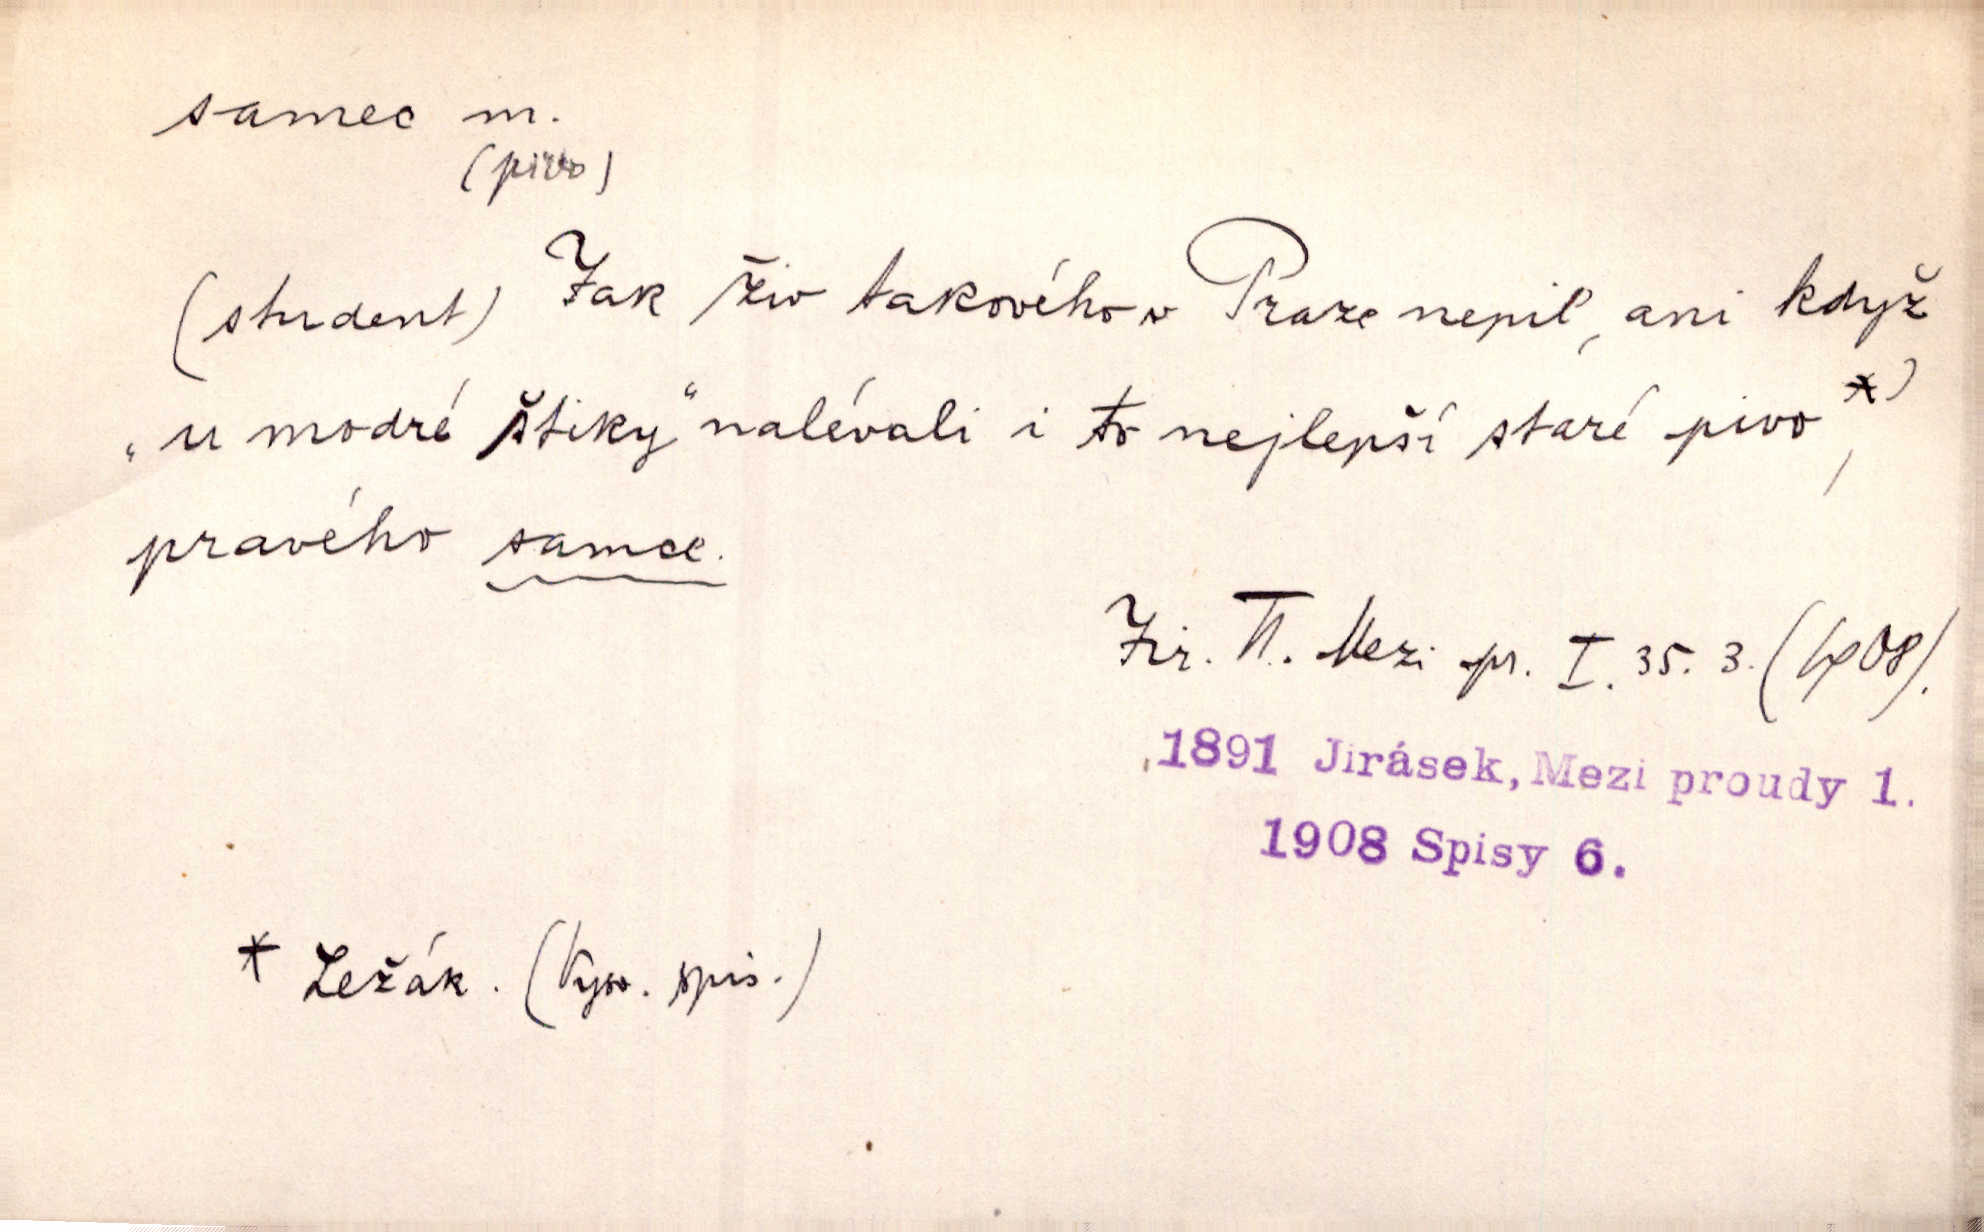 samec m.
(pivo)
(student) Jak živ takového v Praze nepil, ani když
„u modré štiky“ nalévali i to nejlepší staré pivo*),
pravého samce.
Jir. VI. Mezi pr. I. 35. 3. (1908).
1891 Jirásek, Mezi proudy 1.
1908 Spisy 6.
* Ležák. (Vysv. spis.)